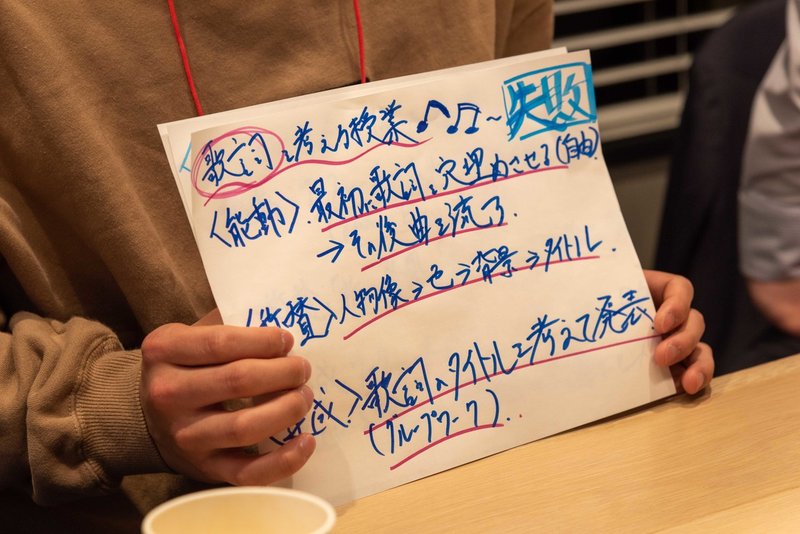 歌詞を考える授業 ♪♫～ 失敗
〈能動〉. 最初に歌詞を穴埋めさせる(自由).
→その後曲を流す.
人物像⇒色⇒背景⇒タイトル.
歌詞のタイトルを考えて発表.
(グループワーク)..